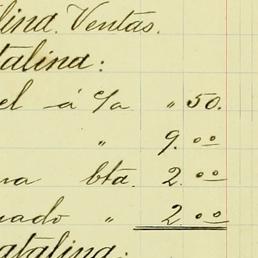 lina. Ventas.
talina:
el á c/a " 50.
" 9.00
na bta. 2.00
uado " 2.00
atalina: